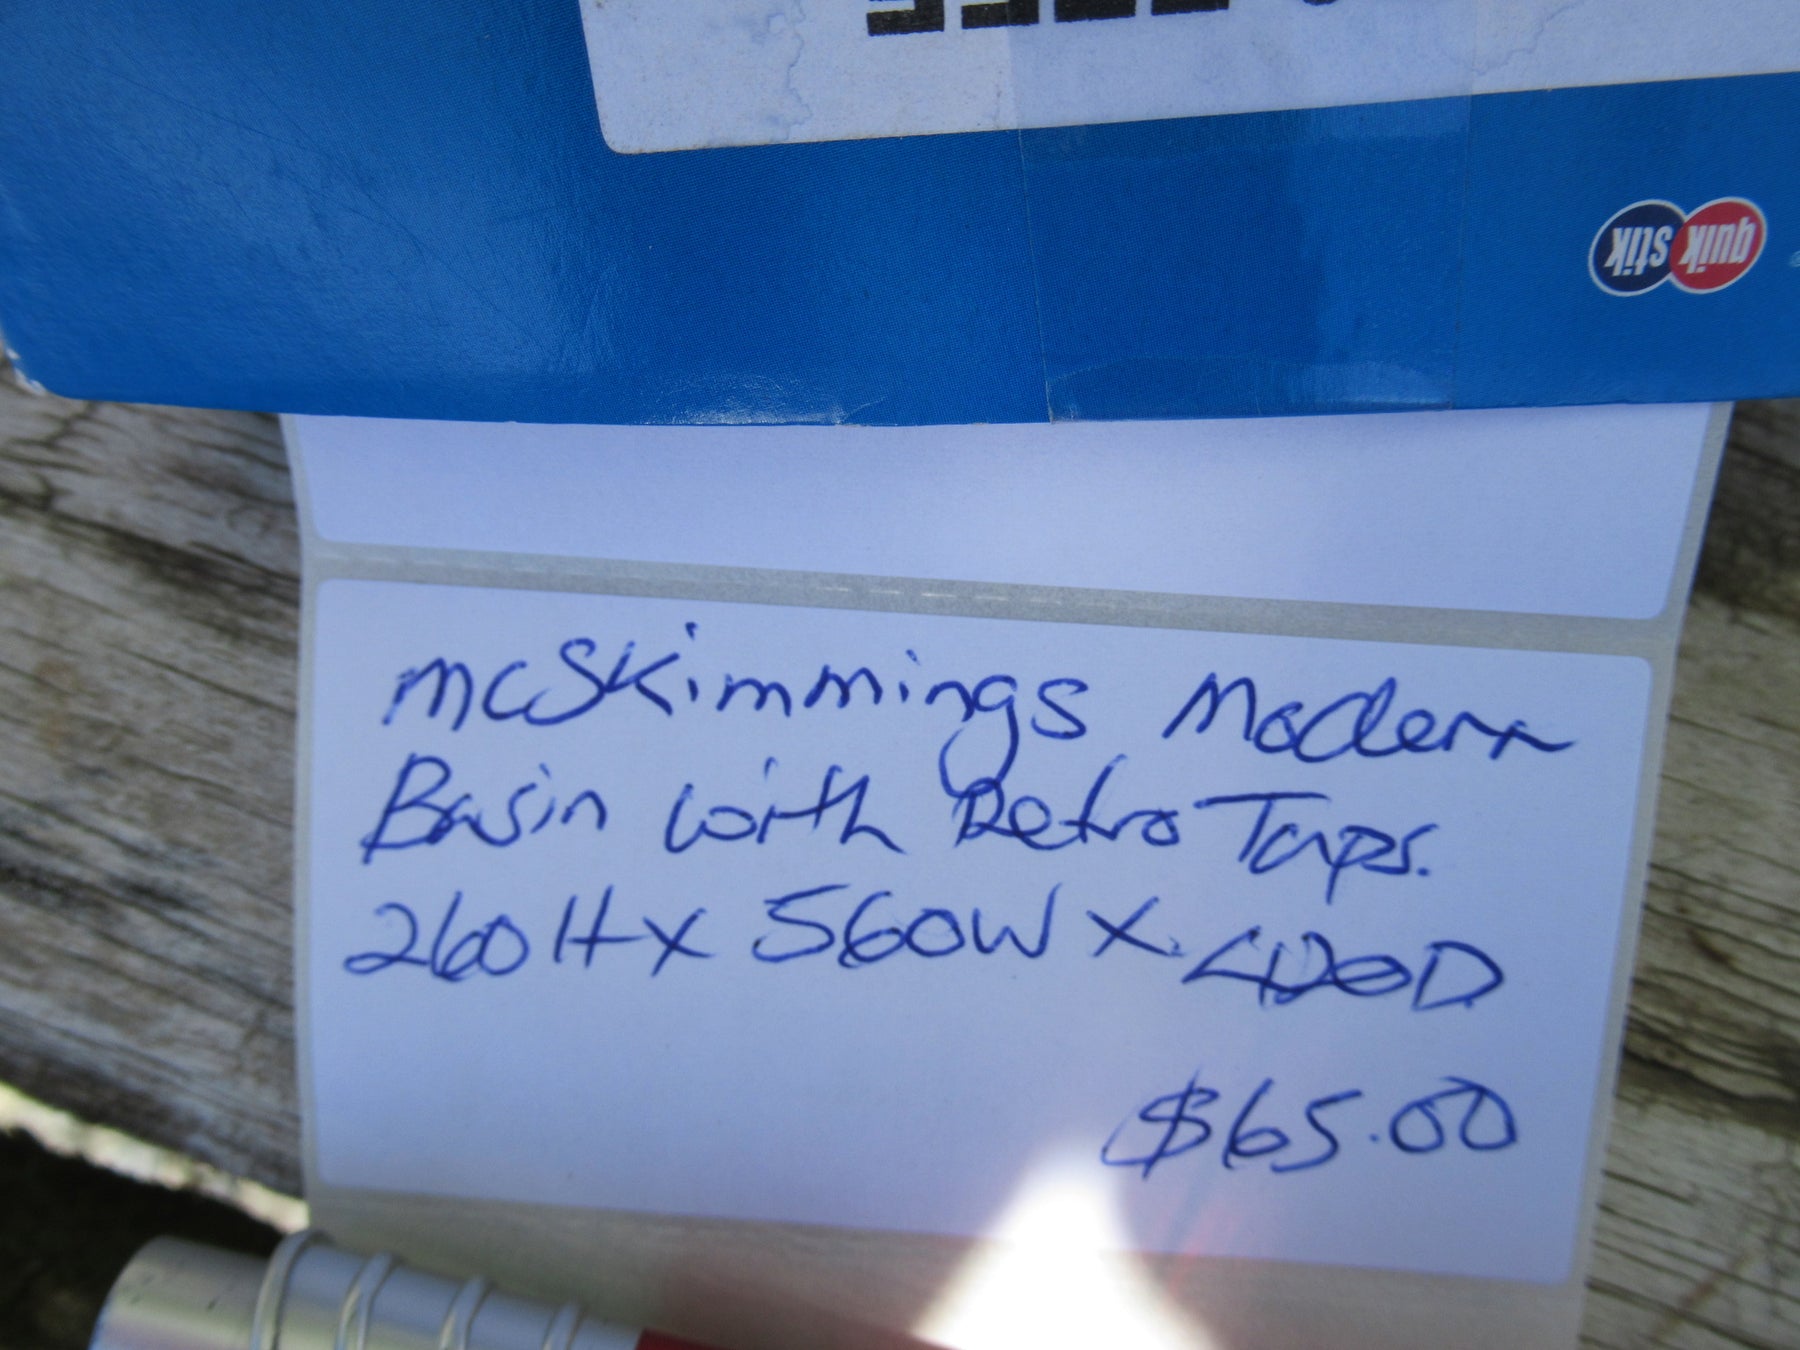 quik stik
McSkimmings Modern
Basin with Retro Taps.
260H x 560W x 420D
$65.00